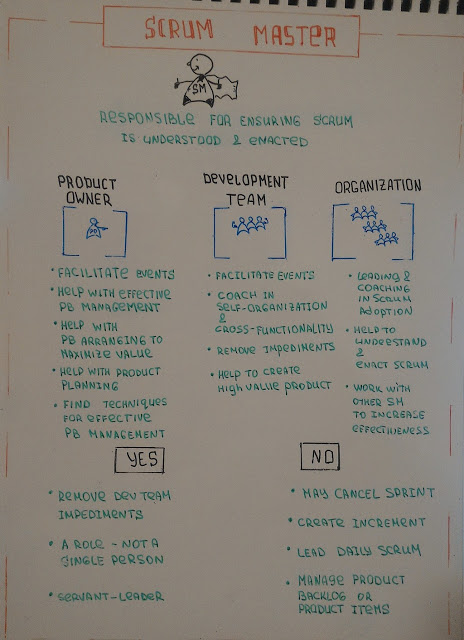 SCRUM MASTER
SM
RESPONSIBLE FOR ENSURING SCRUM
IS UNDERSTOOD & ENACTED
PRODUCT
OWNER
PO
• FACILITATE EVENTS
• HELP WITH EFFECTIVE
PB MANAGEMENT
• HELP WITH
PB ARRANGING TO
MAXIMIZE VALUE
• HELP WITH PRODUCT
PLANNING
• FIND TECHNIQUES
FOR EFFECTIVE
PB MANAGEMENT
DEVELOPMENT
TEAM
• FACILITATE EVENTS
• COACH IN
SELF-ORGANIZATION
&
CROSS-FUNCTIONALITY
• REMOVE IMPEDIMENTS
• HELP TO CREATE
HIGH VALUE PRODUCT
ORGANIZATION
• LEADING &
COACHING
IN SCRUM
ADOPTION
• HELP TO
UNDESTAND
&
ENACT SCRUM
• WORK WITH
OTHER SM
TO INCREASE
EFFECTIVENESS
YES
• REMOVE DEV TEAM
IMPEDIMENTS
• A ROLE - NOT A
SINGLE PERSON
• SERVANT-LEADER
NO
• MAY CANCEL SPRINT
• CREATE INCREMENT
• LEAD DAILY SCRUM
• MANAGE PRODUCT
BACKLOG OR
PRODUCT ITEMS